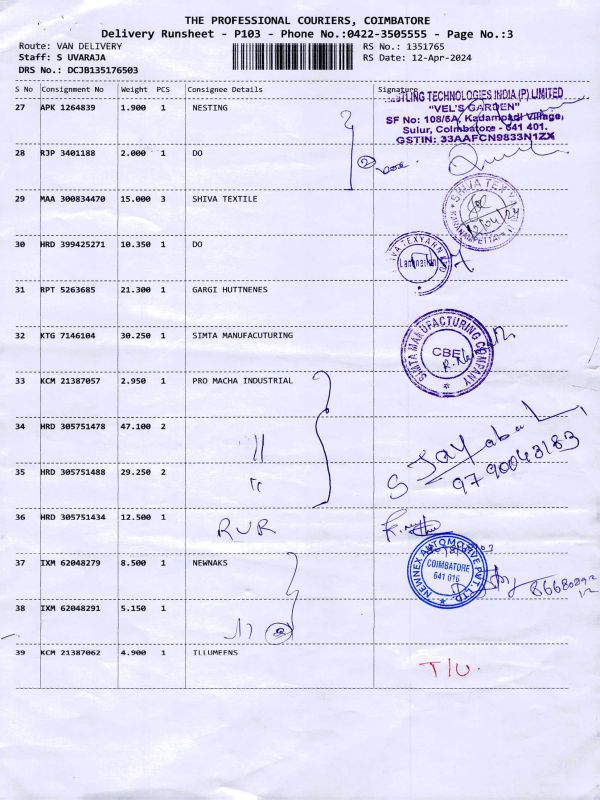 THE PROFESSIONAL COURIERS, COIMBATORE
Delivery Runsheet - P103 - Phone No.:0422-3505555 - Page No.:3
Route: VAN DELIVERY
Staff: S UVARAJA
DRS No.: DCJB135176503
RS No.: 1351765
RS Date: 12-Apr-2024
S No Consignment No Weight PCS Consignee Details Signature
27 APK 1264839 1.900 1 NESTING
TECHNOLOGIES INDIA (P) LIMITED
"VEL'S GARDEN"
SF No: 108/6A, Kadampadi Village,
Sulur, Coimbatore - 641 401.
GSTIN: 33AAFCN9833N1ZX
28 RJP 3401188 2.000 1 DO
2
29 MAA 300834470 15.000 3 SHIVA TEXTILE
SHIVA TEX
12/04/24
30 HRD 399425271 10.350 1 DO
TEXYARN
Lamination
31 RPT 5263685 21.300 1 GARGI HUTTNENES
32 KTG 7146104 30.250 1 SIMTA MANUFACUTURING
SIMTA MANUFACTURING COMPANY
CBE
33 KCM 21387057 2.950 1 PRO MACHA INDUSTRIAL
34 HRD 305751478 47.100 2
"
S Jayabal
9790048183
35 HRD 305751488 29.250 2
"
36 HRD 305751434 12.500 1 RVR
37 IXM 62048279 8.500 1 NEWNAKS
NEWNEX AUTOMOTIVE PVT. LTD.
COIMBATORE
641 016
38 IXM 62048291 5.150 1
39 KCM 21387062 4.900 1 ILLUMEENS
T/U.